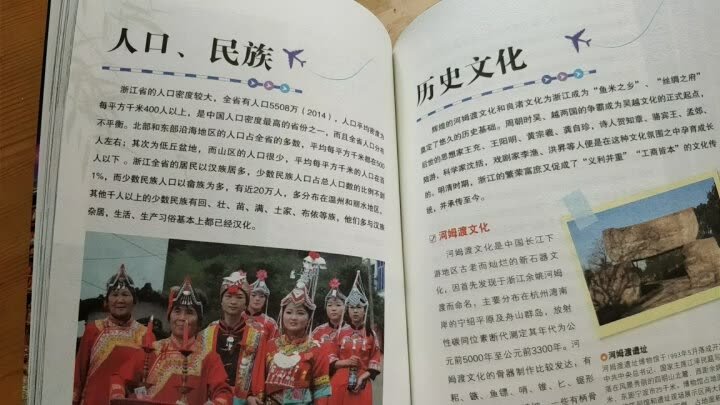 人口、民族
浙江省的人口密度较大，全省有人口5508万（2014），人口平均密度为
每平方千米400人以上，是中国人口密度最高的省份之一，而且全省人口分布
不平衡。北部和东部沿海地区的人口占全省的多数，平均每平方千米都在500
人左右；其次为低丘盆地，而山区的人口很少，平均每平方千米的人口在百
人以下。浙江全省的居民以汉族居多，少数民族人口占总人口数的比例不到
1%，而少数民族人口以畲族为多，有近20万人，多分布在温州和丽水地区，
其他千人以上的少数民族有回、壮、苗、满、土家、布依等族，他们多与汉族
杂居，生活、生产习俗基本上都已经汉化。
历史文化
辉煌的河姆渡文化和良渚文化为浙江成为“鱼米之乡”、“丝绸之府”
奠定了悠久的历史基础。周朝时吴、越两国的争霸成为吴越文化的正式起点，
后世的思想家王充、王阳明、黄宗羲、龚自珍，诗人贺知章、骆宾王、孟郊、
陆游，科学家沈括，戏剧家李渔、洪昇等人便是在这种文化氛围之中孕育成长
的。明清时期，浙江的繁荣富庶又促成了“义利并重”“工商皆本”的文化传
统，并承传至今。
河姆渡文化
河姆渡文化是中国长江下
游地区古老而灿烂的新石器文
化，因首先发现于浙江余姚河姆
渡而命名，主要分布在杭州湾南
岸的宁绍平原及舟山群岛，放射
性碳同位素断代测定其年代为公
元前5000年至公元前3300年。河
姆渡文化的骨器制作比较发达，有
耜、镞、鱼镖、哨、锥、匕、锯形
河姆渡遗址
河姆渡遗址博物馆于1993年5月落成开